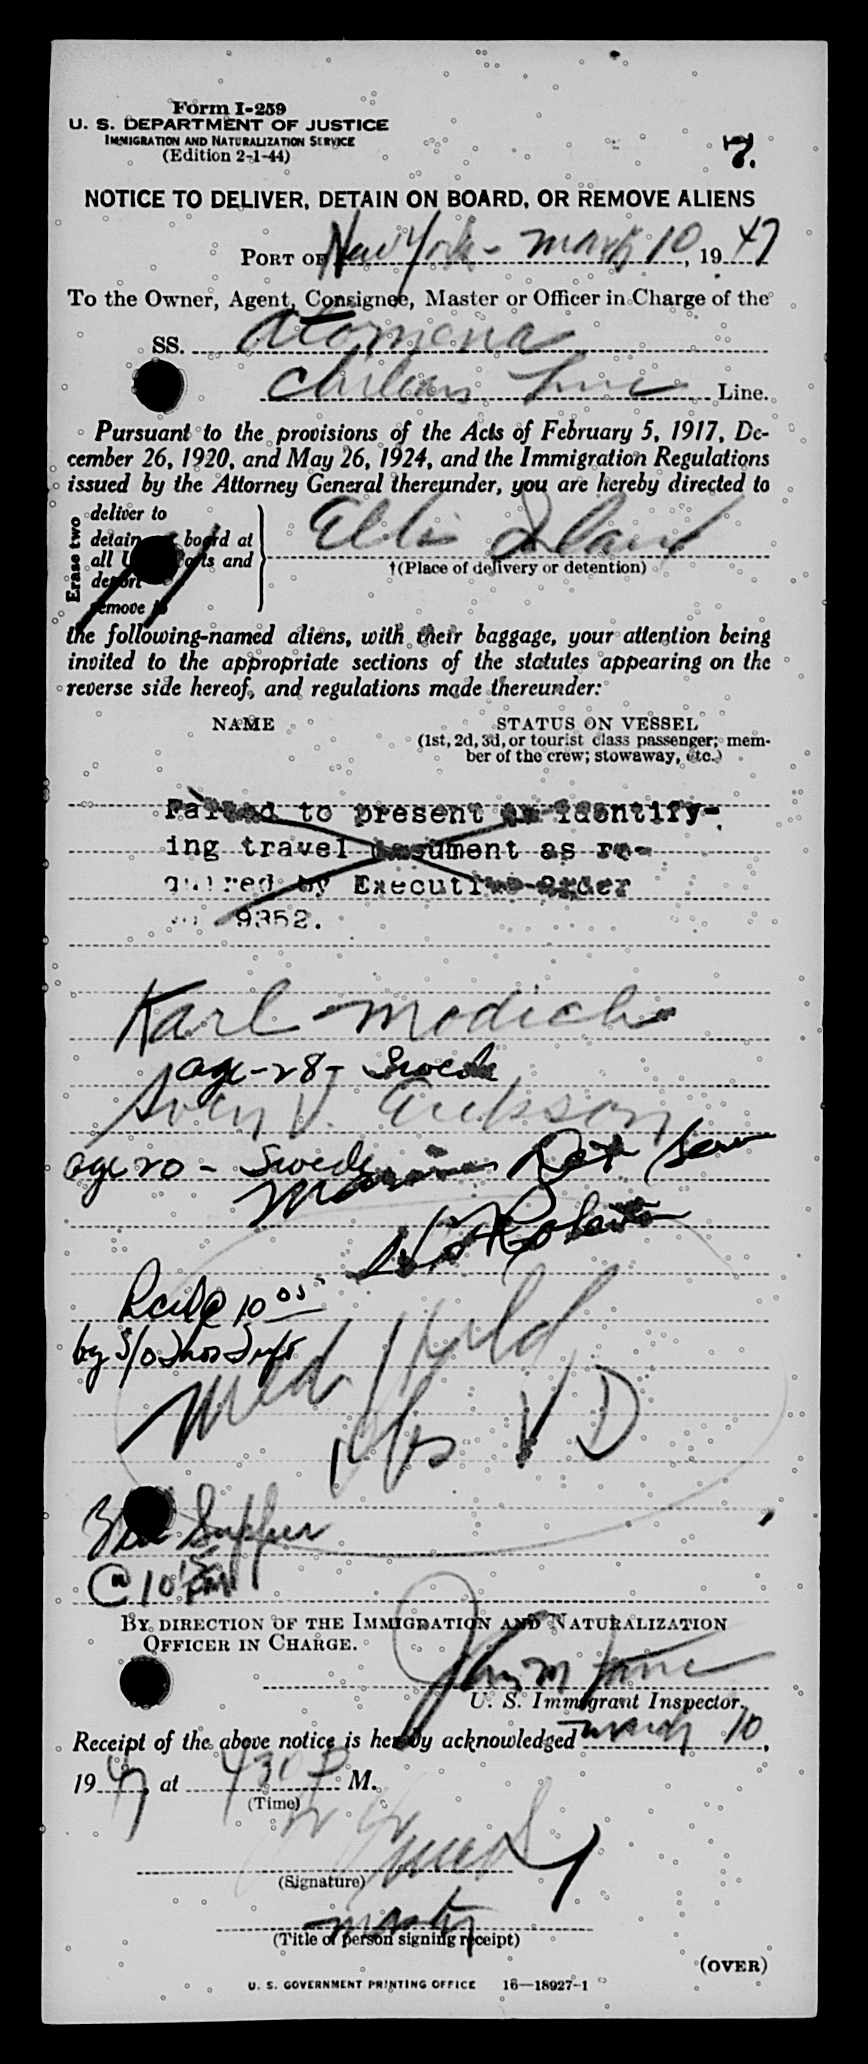 Form I-259
U. S. DEPARTMENT OF JUSTICE
IMMIGRATION AND NATURALIZATION SERVICE
(Edition 2-1-44)
7.
NOTICE TO DELIVER, DETAIN ON BOARD, OR REMOVE ALIENS
PORT OF New York - March 10, 1947
To the Owner, Agent, Consignee, Master or Officer in Charge of the
SS. Atomena
Chilean Line Line.
Pursuant to the provisions of the Acts of February 5, 1917, De-
cember 26, 1920, and May 26, 1924, and the Immigration Regulations
issued by the Attorney General thereunder, you are hereby directed to
Erase two
deliver to
detain board at
all Ports and
deport
remove to
Ellis Island
†(Place of delivery or detention)
the following-named aliens, with their baggage, your attention being
invited to the appropriate sections of the statutes appearing on the
reverse side hereof, and regulations made thereunder:
NAME
STATUS ON VESSEL
(1st, 2d, 3d, or tourist class passenger; mem-
ber of the crew; stowaway, etc.)
Failed to present an identify-
ing travel document as re-
quired by Executive Order
9352.
Karl Modich
age - 28 - Swede
Sven V. Erikson
age 20 - Swede
Marine Det
Roberts
Rcd @ 10 05
by
Med Hold
VD
Supper
@ 10 15 PM
BY DIRECTION OF THE IMMIGRATION AND NATURALIZATION
OFFICER IN CHARGE.
U. S. Immigrant Inspector.
Receipt of the above notice is hereby acknowledged March 10,
1947, at 430 P M.
(Time)
(Signature)
Master
(Title of person signing receipt)
(OVER)
U. S. GOVERNMENT PRINTING OFFICE 16—18927-1